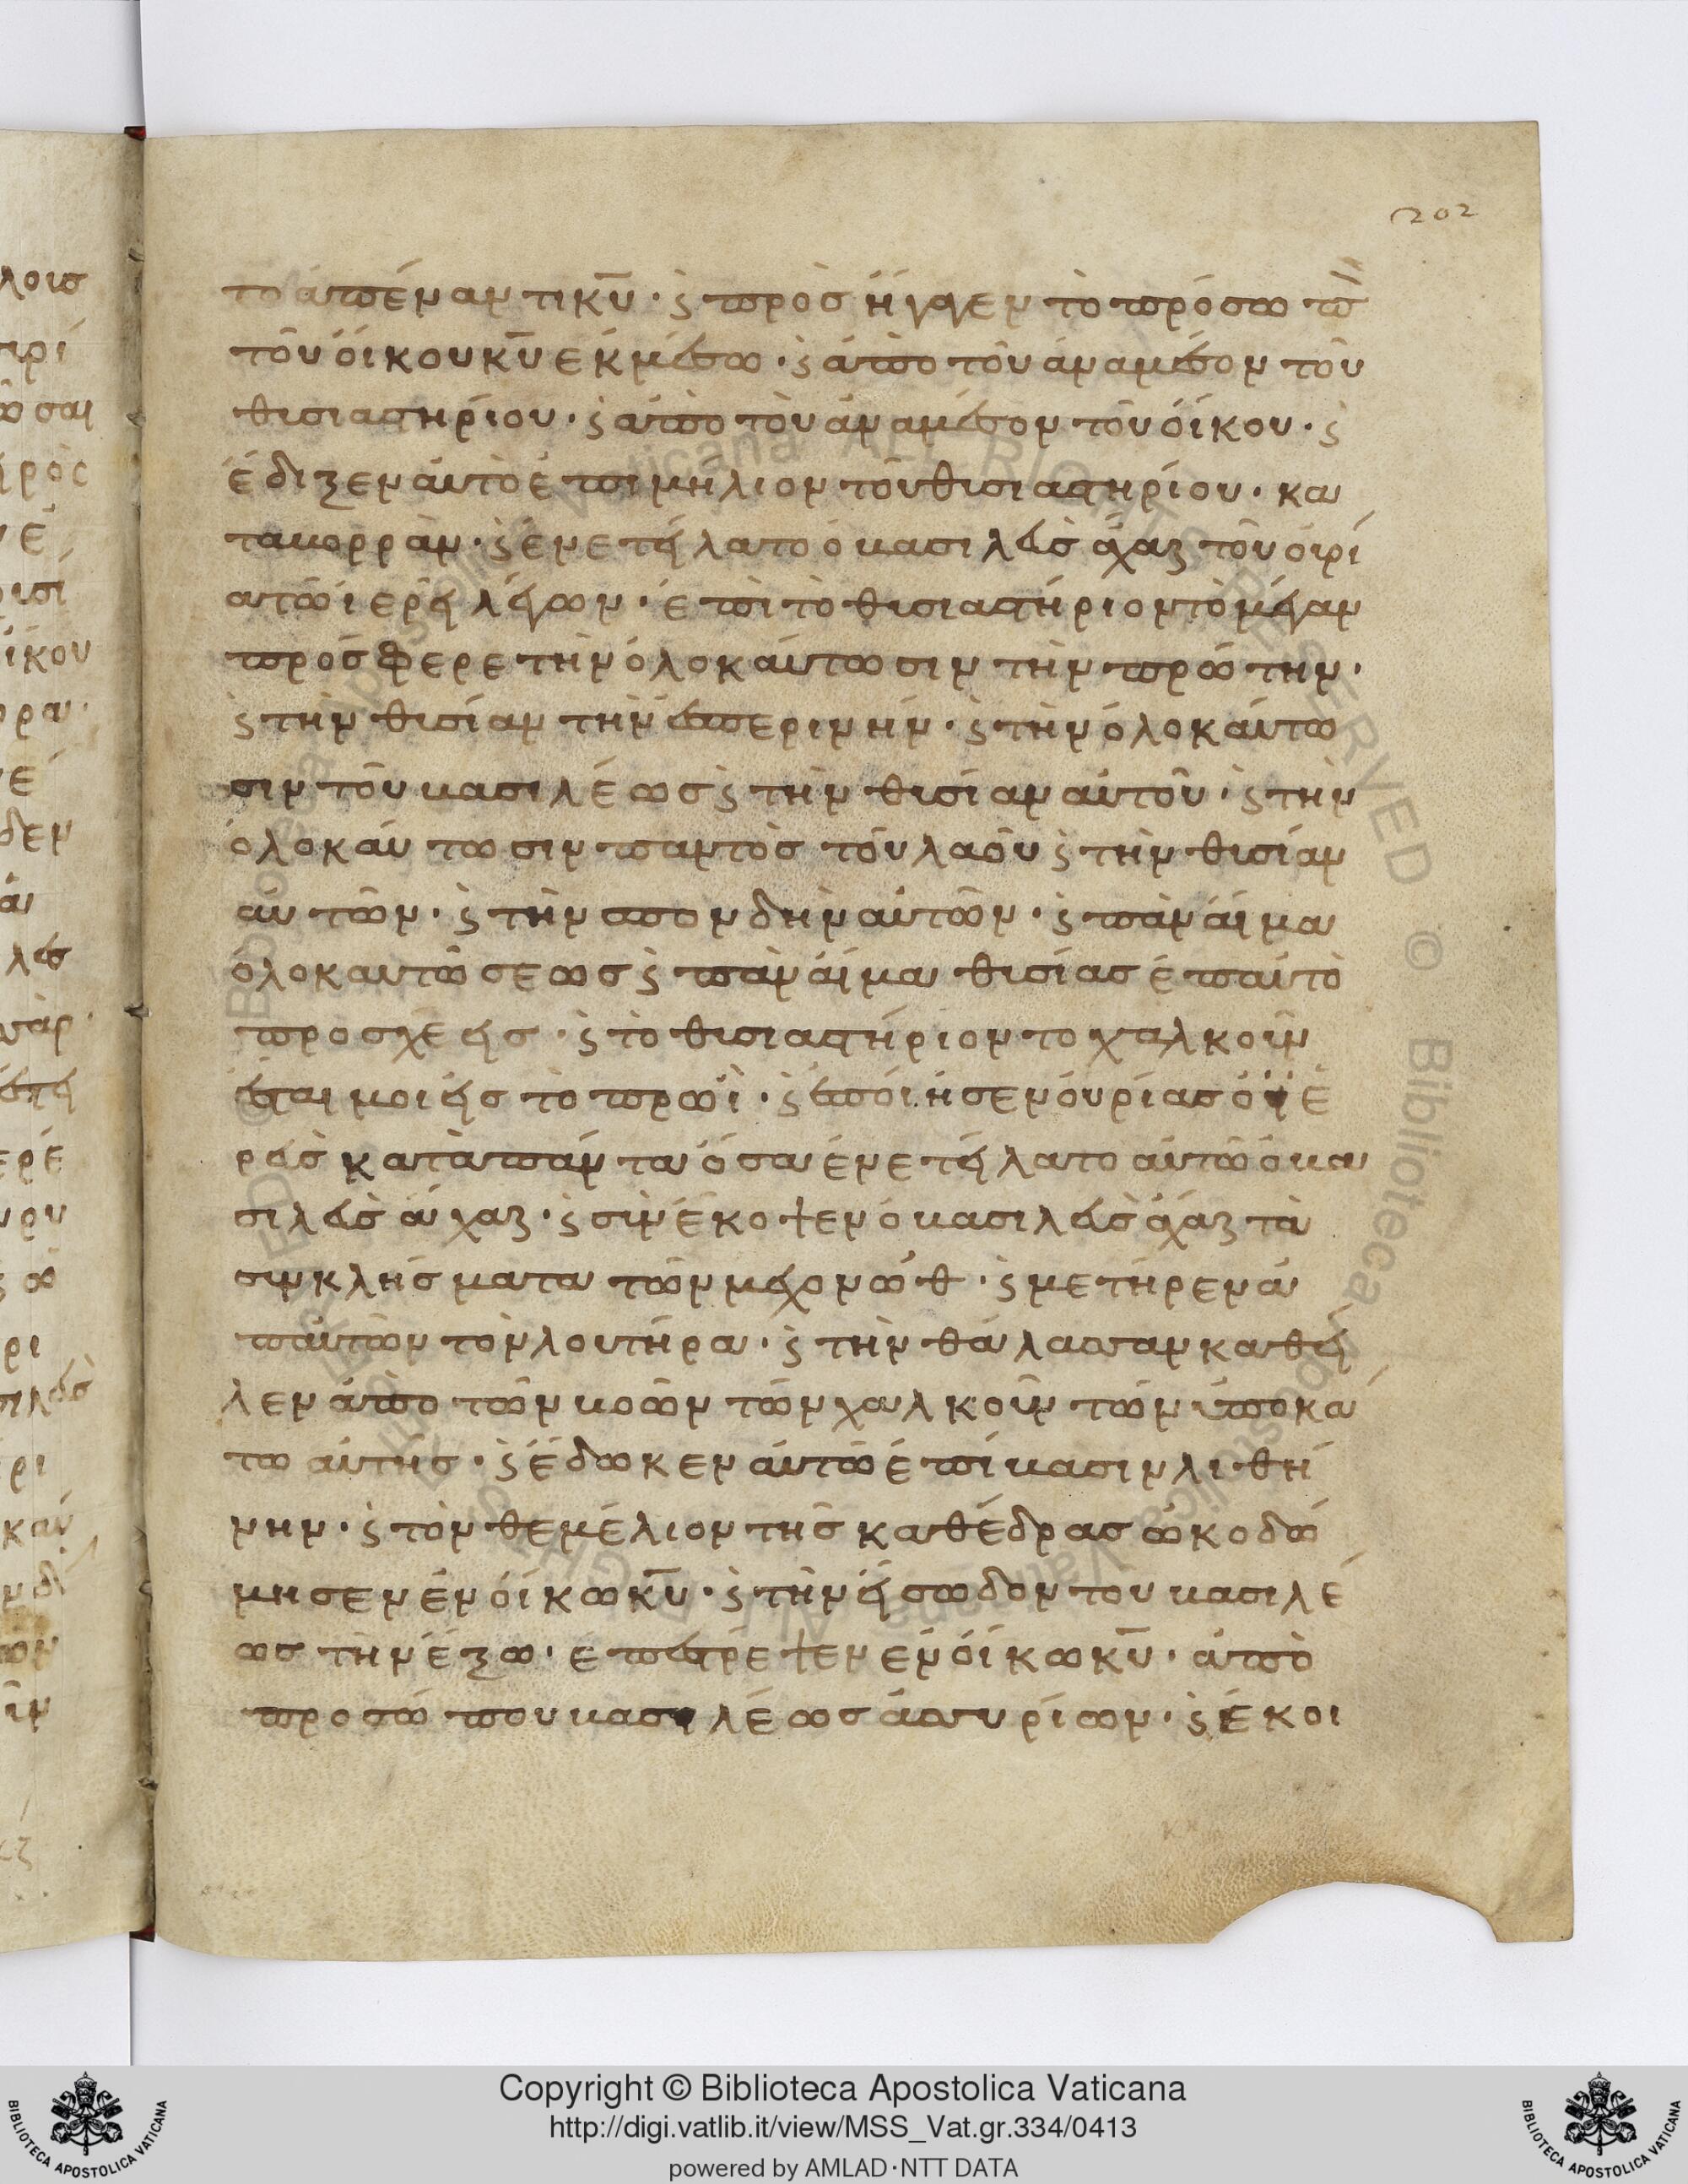 202
το ἀπέναντι κ̅υ̅· ϛ̀ προσήγαγεν τὸ πρόσωπ̅
τοῦ οἴκου κ̅υ̅ ἐκ μέσω· ϛ̀ ἀπὸ τοῦ ἀναμέσον τοῦ
θισιαστηρίου· ϛ̀ ἀπὸ τοῦ ἀναμέσον τοῦ οἴκου· ϛ̀
ἔδιξεν αὐτὸ ἐπι μήλιον τοῦ θισιαστηρίου· κα
τα βορρὰν· ϛ̀ ἐνετείλατο ὁ βασιλεὺσ ἄχαζ τοῦ ὀιρί
α τῶ ἱερεῖ λέγων· ἐπὶ τὸ θισιαστήριον τὸ μέγαν
πρόσφερε τὴν ὁλοκαύτωσιν τὴν πρώτην·
ϛ̀ τὴν θισίαν τὴν ἑσπερινήν· ϛ̀ τὴν ὁλοκαύτω
σιν τοῦ βασιλέωσ ϛ̀ τὴν θισίαν αὐτοῦ· ϛ̀ τὴν
ὁλοκαύτωσιν παντὸσ τοῦ λαοῦ ϛ̀ τὴν θισίαν
αὐτῶν· ϛ̀ τὴν σπονδὴν αὐτῶν· ϛ̀ πὰν αἷμα
ὁλοκαυτώσεωσ ϛ̀ πὰν αἷμα θισίασ ἐπ αὐτὸ
προσχεεῖσ· ϛ̀ τὸ θισιαστήριον το χαλκοῦν
ἔσται μοι εἰσ τὸ πρωΐ· ϛ̀ ἐποίησεν οὐρίασ ὁ ἱε
ρεὺσ κατὰ πάντα ὅσα ἐνετείλατο αὐτῶ ὁ βα
σιλεὺσ ἄχαζ· ϛ̀ σινέκοψεν ὁ βασιλεὺσ ἄχαζ τὰ
συνκλήσματα τῶν μεχονώθ· ϛ̀ μετήρεν ἀ
π αὐτῶν τὸν λουτήρα· ϛ̀ τὴν θάλασσαν καθεί
λεν ἀπὸ τῶν βοῶν τῶν χαλκοῦν τῶν ὑποκά
τω αὐτῆσ· ϛ̀ ἔδωκεν αὐτῶ ἐπί βασιν λιθή
νην· ϛ̀ τὸν θεμέλιον τῆσ καθέδρασ ὠκοδώ
μησεν ἐν οἴκω κ̅υ̅· ϛ̀ τὴν εἴσωδον του βασιλέ
ωσ τὴν ἔξω· ἐπέστρεψεν ἐν οἴκω κ̅υ̅· ἀπὸ
προσώπου βασιλέωσ ἀσσυρίων· ϛ̀ ἐκοι
Copyright © Biblioteca Apostolica Vaticana
http://digi.vatlib.it/view/MSS_Vat.gr.334/0413
powered by AMLAD·NTT DATA
BIBLIOTECA APOSTOLICA VATICANA
BIBLIOTECA APOSTOLICA VATICANA